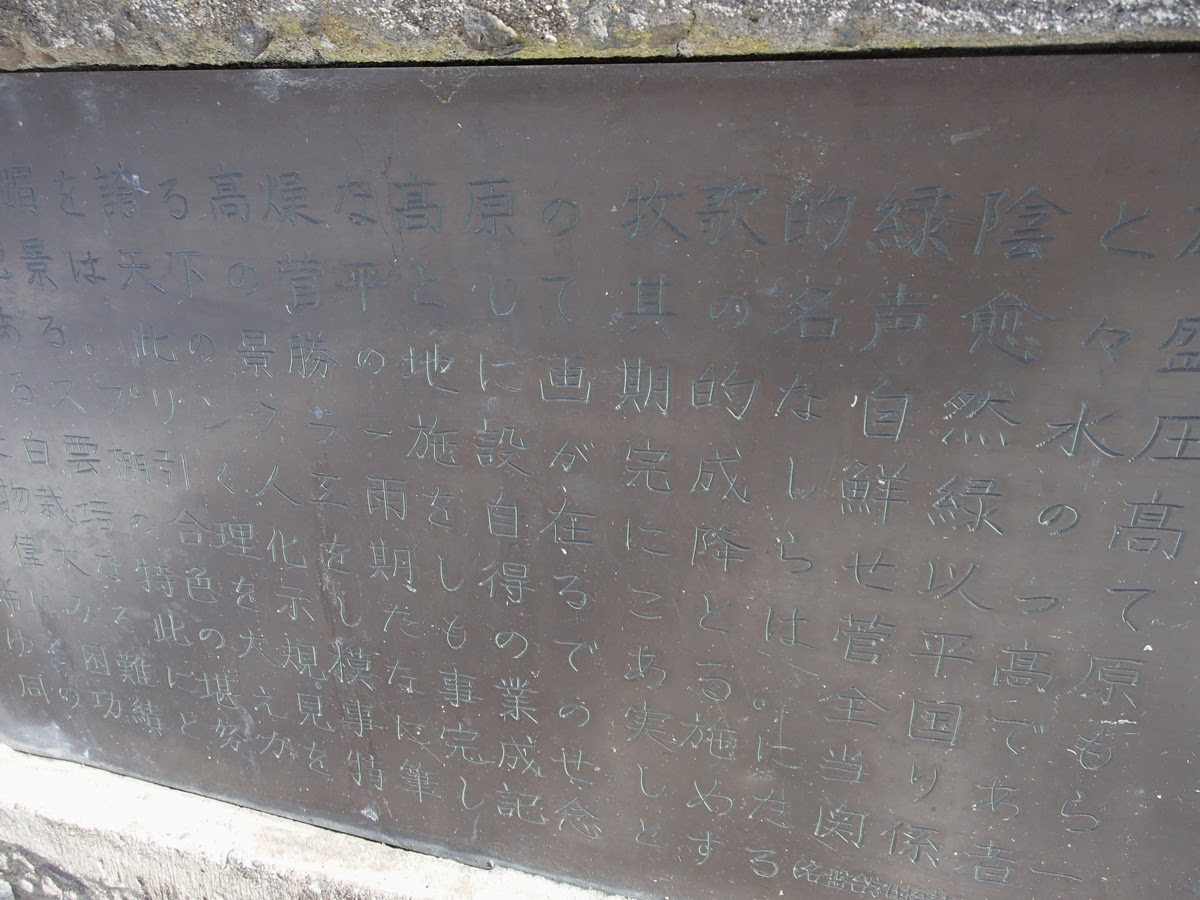 媚を誇る高燥な髙原の牧歌的緑陰と
景は天下の菅平として其の名声愈々盛
ある。此の景勝の地に画期的な自然水圧
るスプリンクラー施設が完成し鮮緑の髙
白雲棚引く人立雨を自在に降らせ以って
物栽培の合理化を期し得ることは菅平高原
偉大な特色を示したものである。全国でも
希にみる此の大規模な事業の実施に当りあら
ゆる困難に堪え見事完成せしやた関係者一
同の功績と労力を特に筆し記念とする